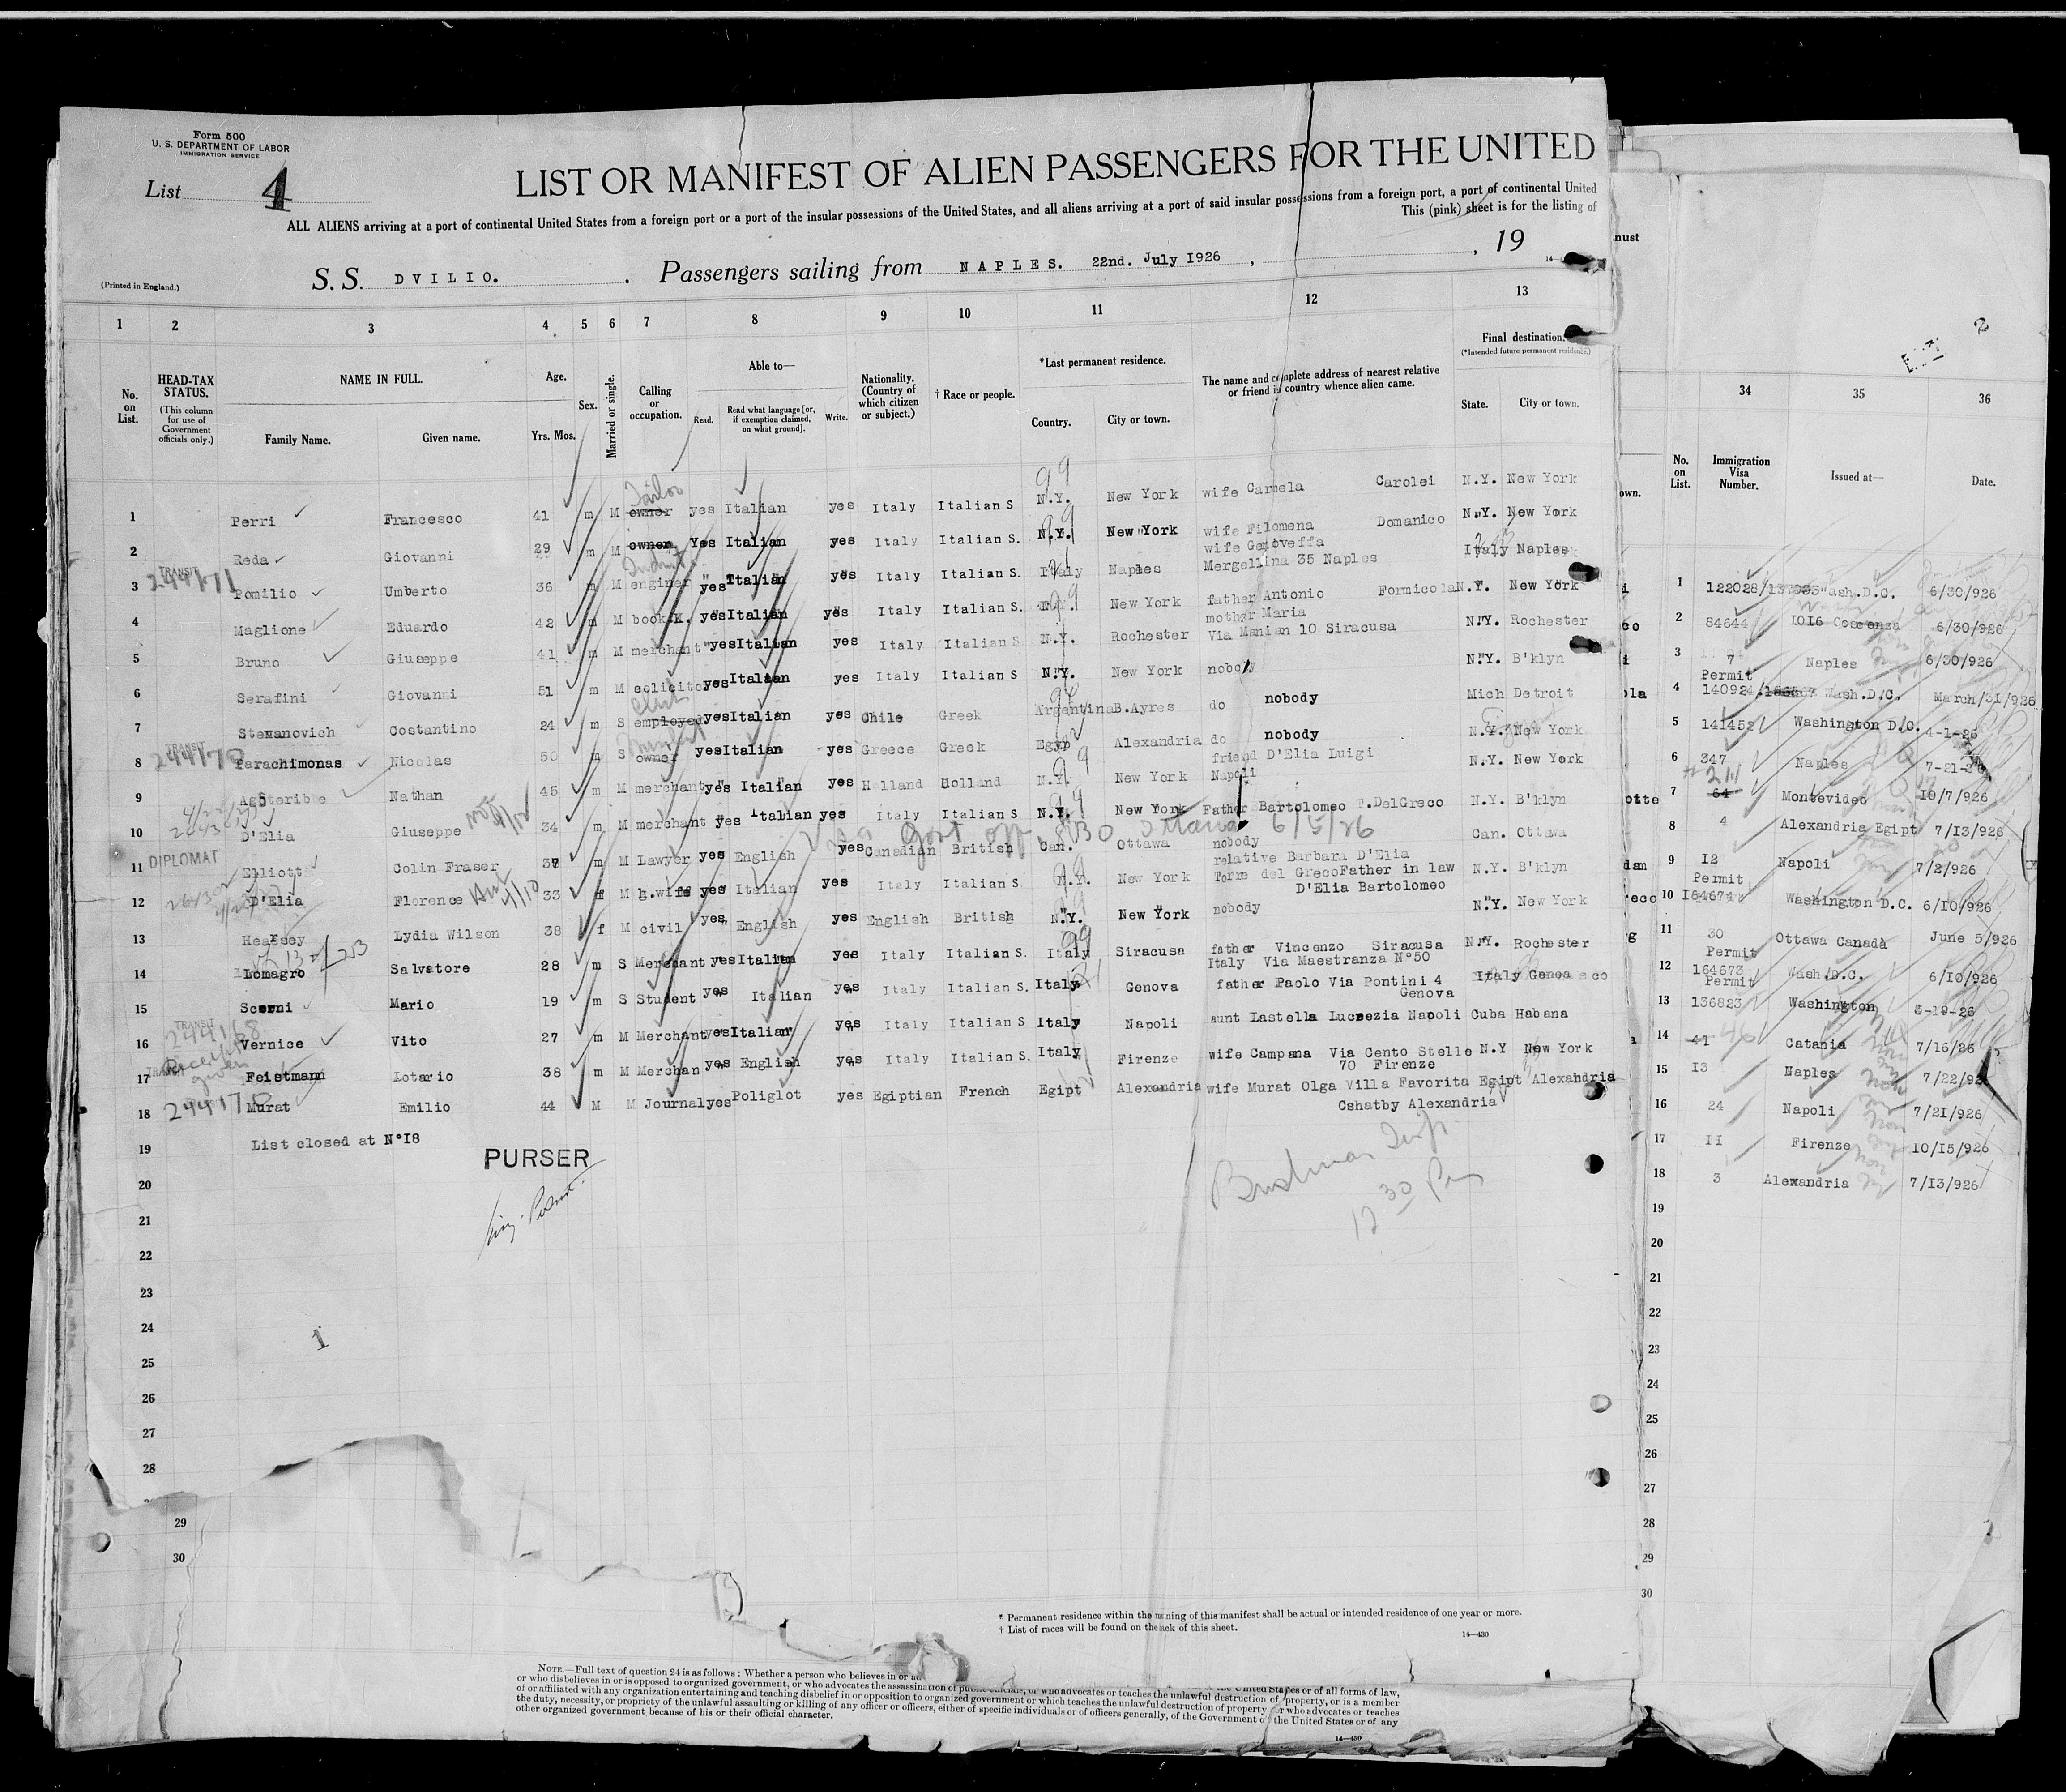 Form 500
U. S. DEPARTMENT OF LABOR
IMMIGRATION SERVICE
List 4
LIST OR MANIFEST OF ALIEN PASSENGERS FOR THE UNITED
ALL ALIENS arriving at a port of continental United States from a foreign port or a port of the insular possessions of the United States, and all aliens arriving at a port of said insular possessions from a foreign port, a port of continental United
This (pink) sheet is for the listing of
(Printed in England.)
S. S. DVILIO. Passengers sailing from NAPLES. 22nd. July 1926 , , 19
1 2 3 4 5 6 7 8 9 10 11 12 13
No. on List.
HEAD-TAX STATUS.
(This column for use of Government officials only.)
NAME IN FULL.
Family Name. Given name.
Age.
Yrs. Mos.
Sex.
Married or single.
Calling or occupation.
Able to—
Read. Read what language [or, if exemption claimed, on what ground]. Write.
Nationality. (Country of which citizen or subject.)
† Race or people.
*Last permanent residence.
Country. City or town.
The name and complete address of nearest relative or friend in country whence alien came.
Final destination.
(*Intended future permanent residence.)
State. City or town.
1 Perri Francesco 41 m M owner Tailor yes Italian yes Italy Italian S N.Y. New York wife Carmela Carolei N.Y. New York
2 Reda Giovanni 29 m M owner Yes Italian yes Italy Italian S. N.Y. New York wife Filomena Domanico N.Y. New York
3 TRANSIT 244171 Pomilio Umberto 36 m M enginer yes Italian yes Italy Italian S. Italy Naples wife Genoveffa Mergellina 35 Naples Italy Naples
4 Maglione Eduardo 42 m M book K. yes Italian yes Italy Italian S. N.Y. New York father Antonio Formicola N.Y. New York
5 Bruno Giuseppe 41 m M merchant yes Italian yes Italy Italian S N.Y. Rochester mother Maria Via Manian 10 Siracusa N.Y. Rochester
6 Serafini Giovanni 51 m M solicitor yes Italian yes Italy Italian S N.Y. New York nobody N.Y. B'klyn
7 Stemanovich Costantino 24 m S employed yes Italian yes Chile Greek Argentina B.Ayres do nobody Mich Detroit
8 TRANSIT 244170 Parachimonas Nicolas 50 m S owner yes Italian yes Greece Greek Egyp Alexandria do nobody N.Y. New York
9 Nathan 45 m M merchant yes Italian yes Holland Holland N.Y. New York friend D'Elia Luigi Napoli N.Y. New York
10 D'Elia Giuseppe 34 m M merchant yes Italian yes Italy Italian S. N.Y. New York Father Bartolomeo T.DelGreco N.Y. B'klyn
Govt off Ottawa 6/5/26
11 DIPLOMAT Elliott Colin Fraser 37 m M Lawyer yes English yes Canadian British Can. Ottawa nobody Can. Ottawa
12 D'Elia Florence 33 f M h.wife yes Italian yes Italy Italian S N.Y. New York relative Barbara D'Elia Torre del Greco Father in law D'Elia Bartolomeo N.Y. B'klyn
13 Hearsey Lydia Wilson 38 f M civil yes English yes English British N.Y. New York nobody N.Y. New York
14 Lomagro Salvatore 28 m S Merchant yes Italian yes Italy Italian S. Italy Siracusa father Vincenzo Siracusa Italy Via Maestranza N°50 N.Y. Rochester
15 Scerni Mario 19 m S Student yes Italian yes Italy Italian S. Italy Genova father Paolo Via Pontini 4 Genova Italy Genoa
16 TRANSIT 244168 Vernice Vito 27 m M Merchant yes Italian yes Italy Italian S Italy Napoli aunt Lastella Lucrezia Napoli Cuba Habana
17 Feistmann Lotario 38 m M Merchan yes English yes Italy Italian S. Italy Firenze wife Campana Via Cento Stelle 70 Firenze N.Y New York
18 Murat Emilio 44 M M Journal yes Poliglot yes Egiptian French Egipt Alexandria wife Murat Olga Villa Favorita Cshatby Alexandria Egipt Alexandria
19 List closed at N°18
PURSER
20
21
22
23
24
25
26
27
28
29
30
12 30 Pm
1
* Permanent residence within the meaning of this manifest shall be actual or intended residence of one year or more.
† List of races will be found on the back of this sheet.
14—430
NOTE.—Full text of question 24 is as follows: Whether a person who believes in or
or who disbelieves in or is opposed to organized government, or who advocates the assassination of public officials, or who advocates or teaches the unlawful destruction of property, or is a member
of or affiliated with any organization entertaining and teaching disbelief in or opposition to organized government or which teaches the unlawful destruction of property or who advocates or teaches
the duty, necessity, or propriety of the unlawful assaulting or killing of any officer or officers, either of specific individuals or of officers generally, of the Government of the United States or of any
other organized government because of his or their official character.
14—430
2
34 35 36
No. on List.
Immigration Visa Number.
Issued at—
Date.
1 122028 Wash.D.C. 6/30/926
2 84644 1016 Cosenza 6/30/926
3 7 Naples 6/30/926
4 Permit 14092 Wash.D.C. March/31/926
5 141452 Washington D.C. 4-1-26
6 347 Naples 7-21-26
7 64 Montevideo 10/7/926
8 4 Alexandria Egipt 7/13/926
9 12 Napoli 7/2/926
10 Permit 164674 Washington D.C. 6/10/926
11 30 Ottawa Canadà June 5/926
12 Permit 164673 Wash.D.C. 6/10/926
13 Permit 136823 Washington 3-19-26
14 41 Catania 7/16/26
15 13 Naples 7/22/926
16 24 Napoli 7/21/926
17 11 Firenze 10/15/926
18 3 Alexandria 7/13/926
19
20
21
22
23
24
25
26
27
28
29
30